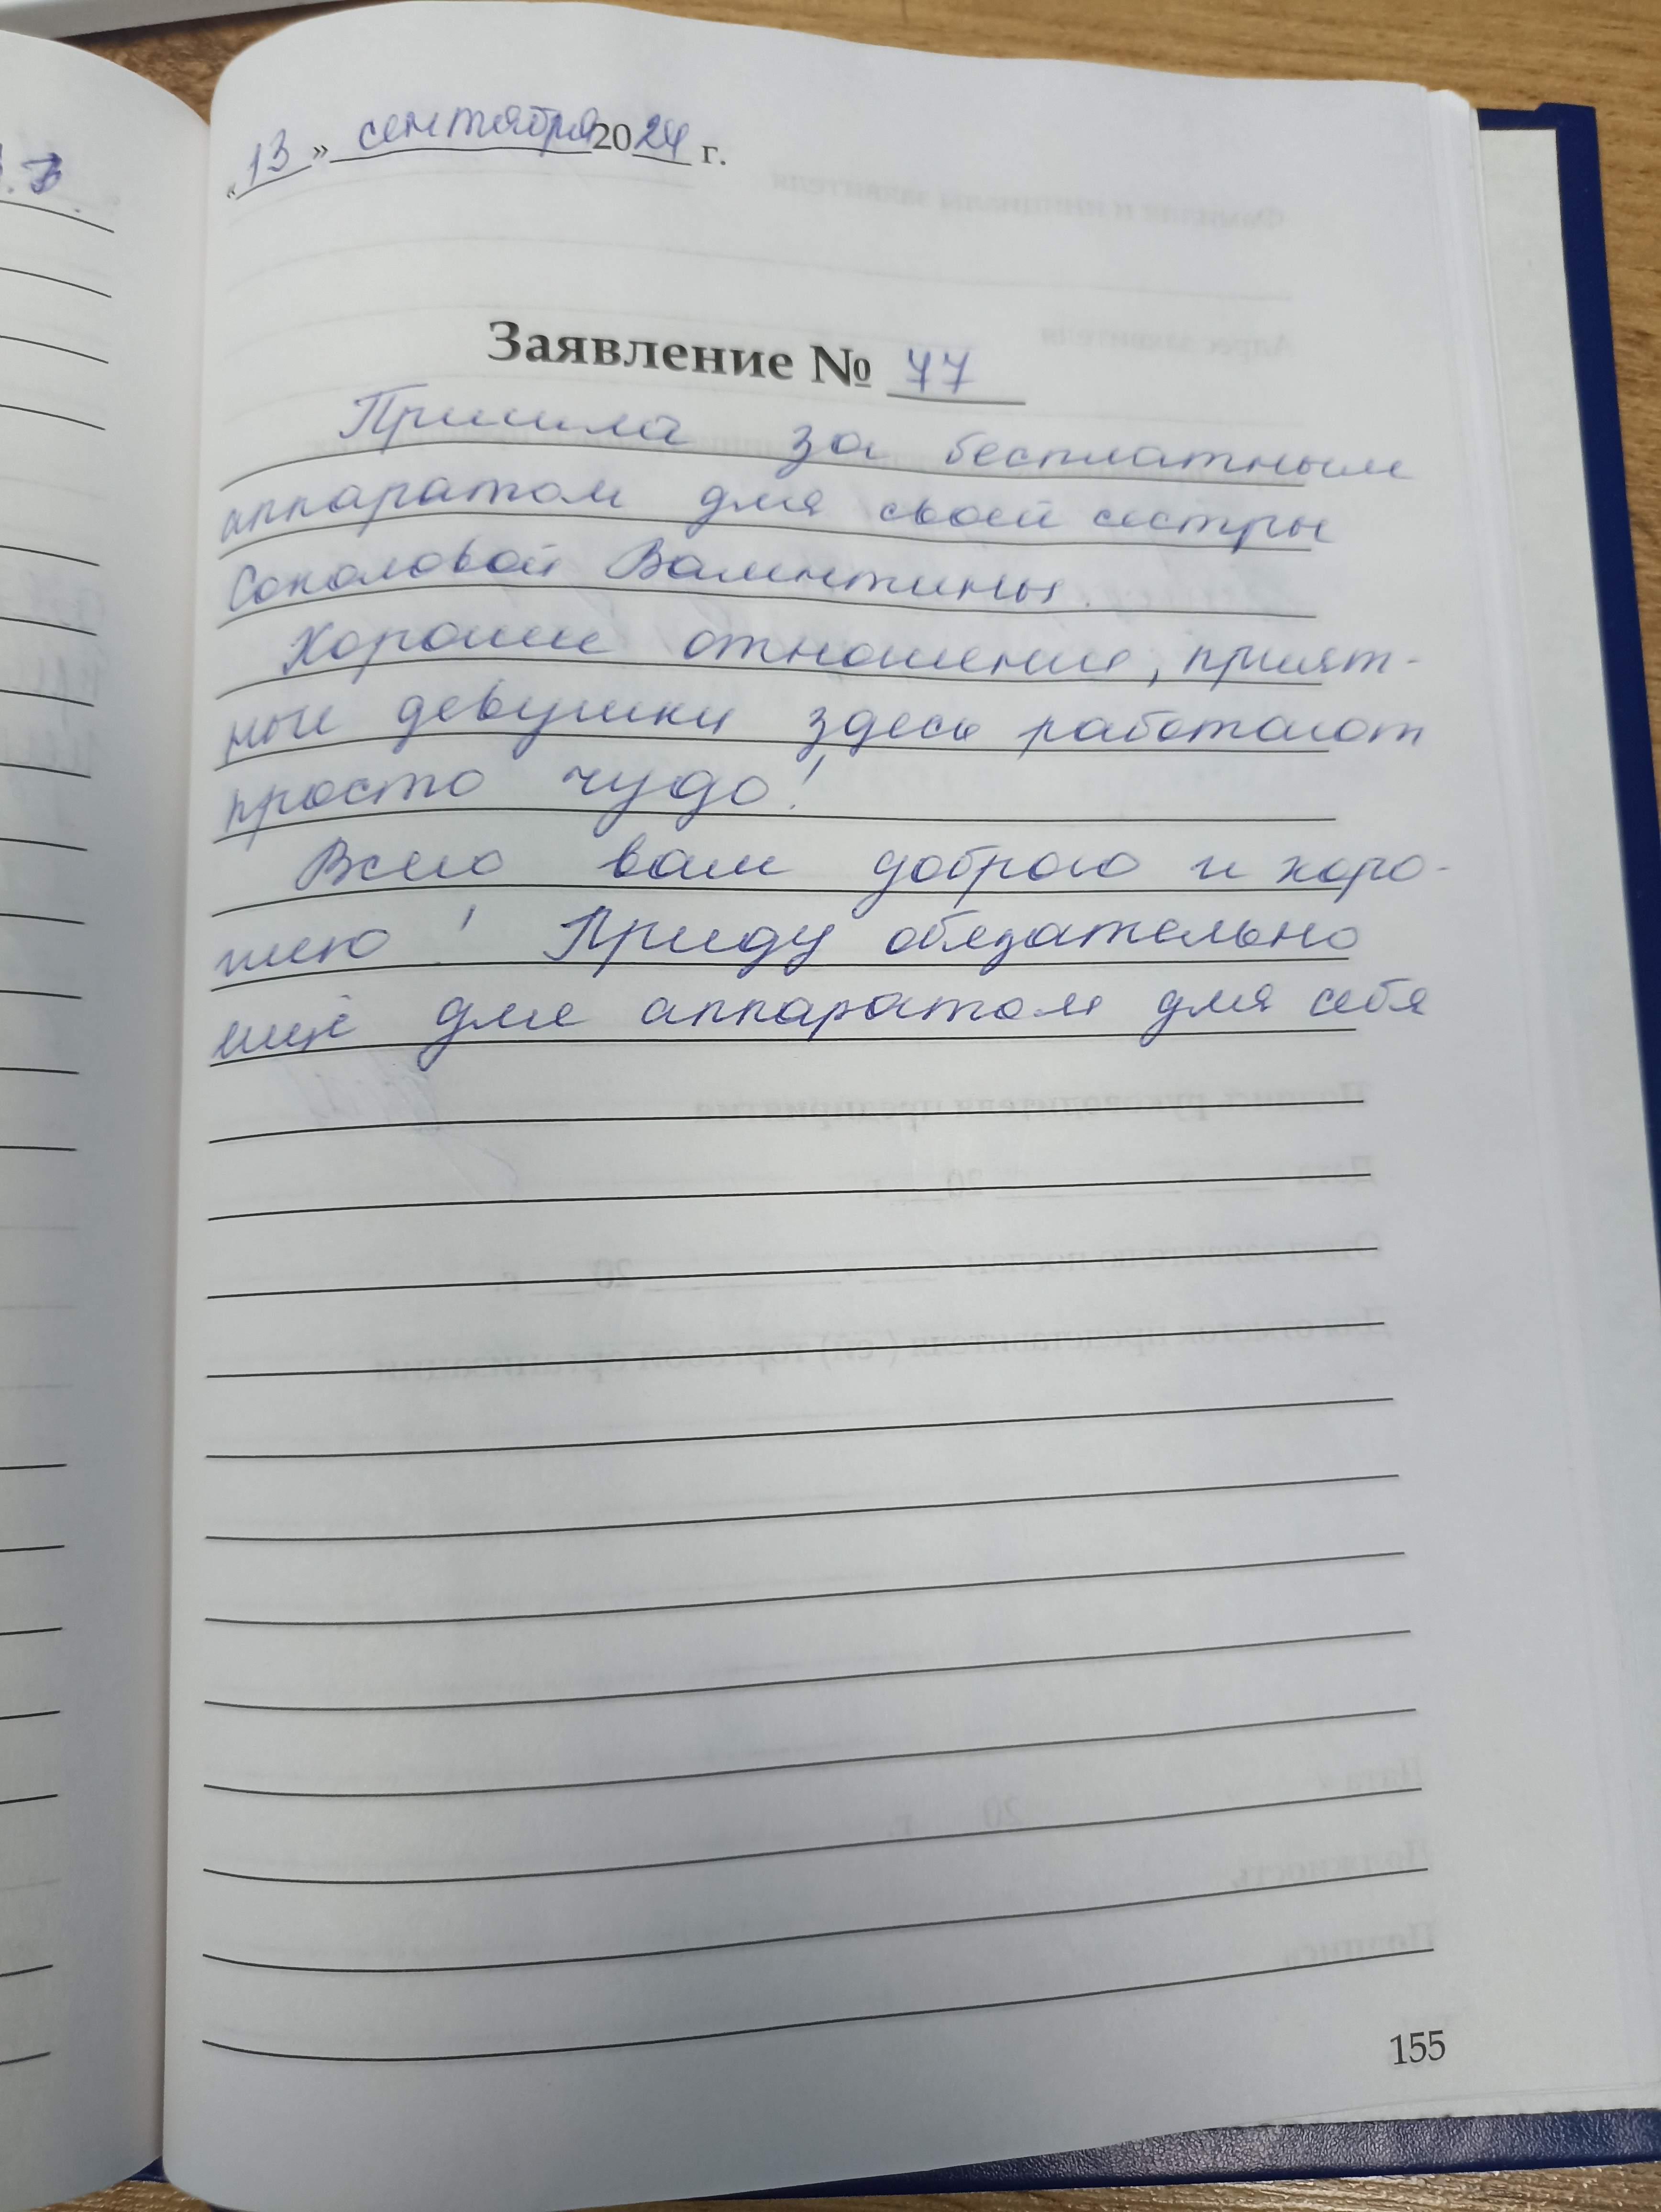 «13» сентября 2024 г.
Заявление № 77
Пришла за бесплатным
аппаратом для своей сестры
Соколовой Валентины.
Хорошие отношения, прият-
ные девушки здесь работают
просто чудо!
Всего вам доброго и хоро-
шего! Приду обязательно
ещё для аппаратом для себя
155